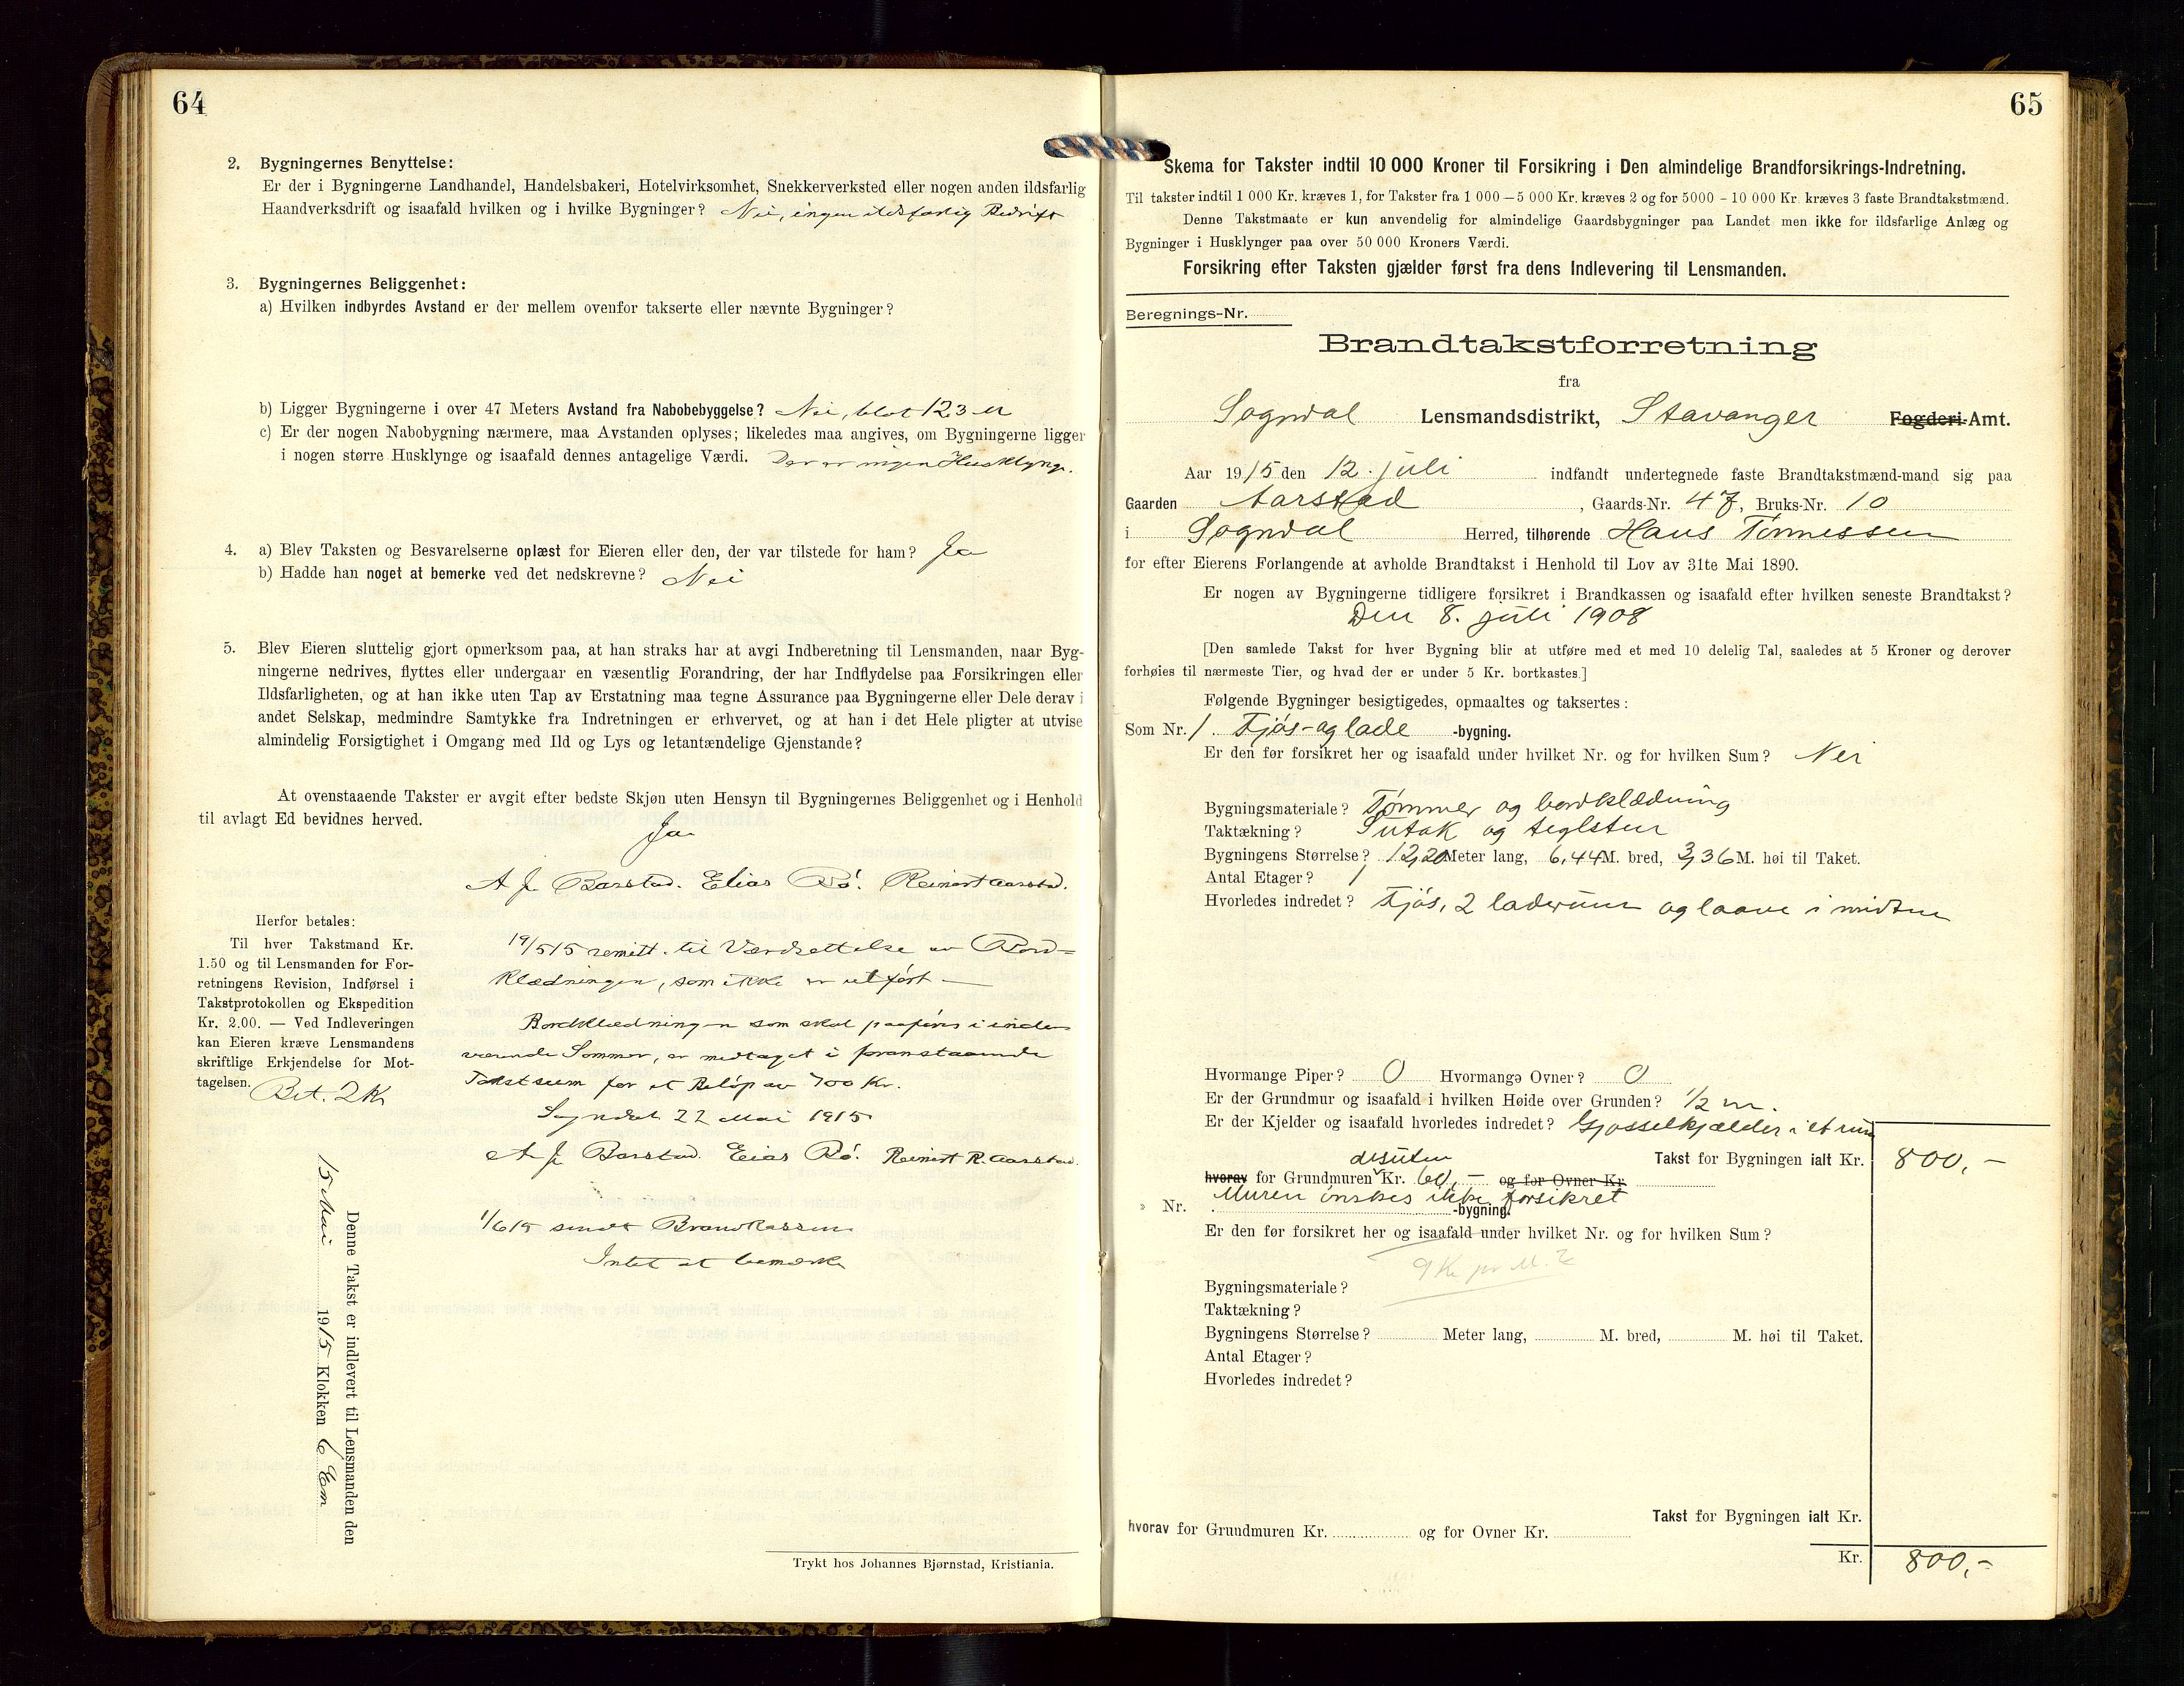 64
2. Bygningernes Benyttelse:
Er der i Bygningerne Landhandel, Handelsbakeri, Hotelvirksomhet, Snekkerverksted eller nogen anden ildsfarlig
Haandverksdrift og isaafald hvilken og i hvilke Bygninger? Nei, ingen ildsfarlig Bedrift
3. Bygningernes Beliggenhet:
a) Hvilken indbyrdes Avstand er der mellem ovenfor takserte eller nævnte Bygninger?
b) Ligger Bygningerne i over 47 Meters Avstand fra Nabobebyggelse? Nei, blot 123 m
c) Er der nogen Nabobygning nærmere, maa Avstanden oplyses; likeledes maa angives, om Bygningerne ligger
i nogen større Husklynge og isaafald dennes antagelige Værdi. Der er ingen Husklynge.
4. a) Blev Taksten og Besvarelserne oplæst for Eieren eller den, der var tilstede for ham? Ja
b) Hadde han noget at bemerke ved det nedskrevne? Nei
5. Blev Eieren sluttelig gjort opmerksom paa, at han straks har at avgi Indberetning til Lensmanden, naar Byg-
ningerne nedrives, flyttes eller undergaar en væsentlig Forandring, der har Indflydelse paa Forsikringen eller
Ildsfarligheten, og at han ikke uten Tap av Erstatning maa tegne Assurance paa Bygningerne eller Dele derav i
andet Selskap, medmindre Samtykke fra Indretningen er erhvervet, og at han i det Hele pligter at utvise
almindelig Forsigtighet i Omgang med Ild og Lys og letantændelige Gjenstande?
At ovenstaaende Takster er avgit efter bedste Skjøn uten Hensyn til Bygningernes Beliggenhet og i Henhold
til avlagt Ed bevidnes herved.
Ja
A J Barstad. Elias Rø. Reinert Aarstad.
Herfor betales:
Til hver Takstmand Kr.
1.50 og til Lensmanden for For-
retningens Revision, Indførsel i
Takstprotokollen og Ekspedition
Kr. 2.00. — Ved Indleveringen
kan Eieren kræve Lensmandens
skriftlige Erkjendelse for Mot-
tagelsen. Bet. 2 Kr
19/5 15 remitt. til Værdsettelse av Bord=
klædningen, som ikke er utført —
Bordklædningen som skal paaføres i inde-
værende Sommer, er medtaget i foranstaaende
Takstsum for et Beløp av 700 Kr.
Sogndal 22 Mai 1915
A J Barstad. Elias Rø. Reinert R. Aarstad.
1/6 15 sendt Brandkassen
Intet at bemerke
Denne Takst er indlevert til Lensmanden den
15 Mai 1915 Klokken 6 Em
Trykt hos Johannes Bjørnstad, Kristiania.
65
Skema for Takster indtil 10 000 Kroner til Forsikring i Den almindelige Brandforsikrings-Indretning.
Til takster indtil 1 000 Kr. kræves 1, for Takster fra 1 000 – 5 000 Kr. kræves 2 og for 5000 - 10 000 Kr. kræves 3 faste Brandtakstmænd.
Denne Takstmaate er kun anvendelig for almindelige Gaardsbygninger paa Landet men ikke for ildsfarlige Anlæg og
Bygninger i Husklynger paa over 50 000 Kroners Værdi.
Forsikring efter Taksten gjælder først fra dens Indlevering til Lensmanden.
Beregnings-Nr.
Brandtakstforretning
fra
Sogndal Lensmandsdistrikt, Stavanger Fogderi-Amt.
Aar 1915 den 12. juli indfandt undertegnede faste Brandtakstmænd-mand sig paa
Gaarden Aarstad, Gaards-Nr. 47, Bruks-Nr. 10
i Sogndal Herred, tilhørende Hans Tønnessen
for efter Eierens Forlangende at avholde Brandtakst i Henhold til Lov av 31te Mai 1890.
Er nogen av Bygningerne tidligere forsikret i Brandkassen og isaafald efter hvilken seneste Brandtakst?
Den 8. juli 1908
[Den samlede Takst for hver Bygning blir at utføre med et med 10 delelig Tal, saaledes at 5 Kroner og derover
forhøies til nærmeste Tier, og hvad der er under 5 Kr. bortkastes.]
Følgende Bygninger besigtigedes, opmaaltes og taksertes:
Som Nr. 1. Fjøs- og lade -bygning.
Er den før forsikret her og isaafald under hvilket Nr. og for hvilken Sum? Nei
Bygningsmateriale? Tømmer og bordklædning
Taktækning? Sutak og teglsten
Bygningens Størrelse? 12,20 Meter lang, 6,44 M. bred, 3,36 M. høi til Taket.
Antal Etager? 1
Hvorledes indredet? Fjøs, 2 laderum og laave i midten
Hvormange Piper? 0 Hvormange Ovner? 0
Er der Grundmur og isaafald i hvilken Høide over Grunden? 1/2 m.
Er der Kjelder og isaafald hvorledes indredet? Gjødselkjælder i et rum
Takst for Bygningen ialt Kr. 800,–
desuten
hvorav for Grundmuren Kr. 60,– og for Ovner Kr.
Muren ønskes ikke forsikret
Nr. -bygning.
Er den før forsikret her og isaafald under hvilket Nr. og for hvilken Sum?
9 Kr pr M.2
Bygningsmateriale?
Taktækning?
Bygningens Størrelse? Meter lang, M. bred, M. høi til Taket.
Antal Etager?
Hvorledes indredet?
Takst for Bygningen ialt Kr.
hvorav for Grundmuren Kr. og for Ovner Kr.
Kr. 800,–